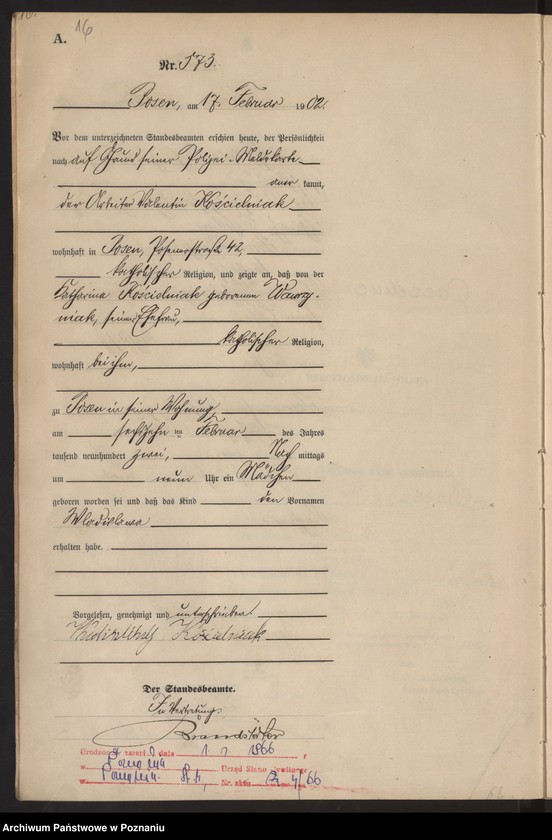 16
A.
Nr. 573.
Posen, am 17. Februar 1902.
Vor dem unterzeichneten Standesbeamten erschien heute, der Persönlichkeit
nach auf Grund seiner Polizei-Meldekarte
aner kannt,
der Arbeiter Valentin Kościelniak
wohnhaft in Posen, 42,
katholischer Religion, und zeigte an, daß von der
Katharina Kościelniak geborenen Wawrzy-
niak, seiner Ehefrau,
katholischer Religion,
wohnhaft bei ihm,
zu Posen in seiner Wohnung,
am sechszehn ten Februar des Jahres
tausend neunhundert zwei, Nach mittags
um neun Uhr ein Mädchen
geboren worden sei und daß das Kind den Vornamen
Wladislawa
erhalten habe.
Vorgelesen, genehmigt und unterschrieben.
Der Standesbeamte.
In Vertretung.
zmarł dnia 1966 r
w
w Urząd Stanu Cywilnego
Nr. aktu /66
Archiwum Państwowe w Poznaniu